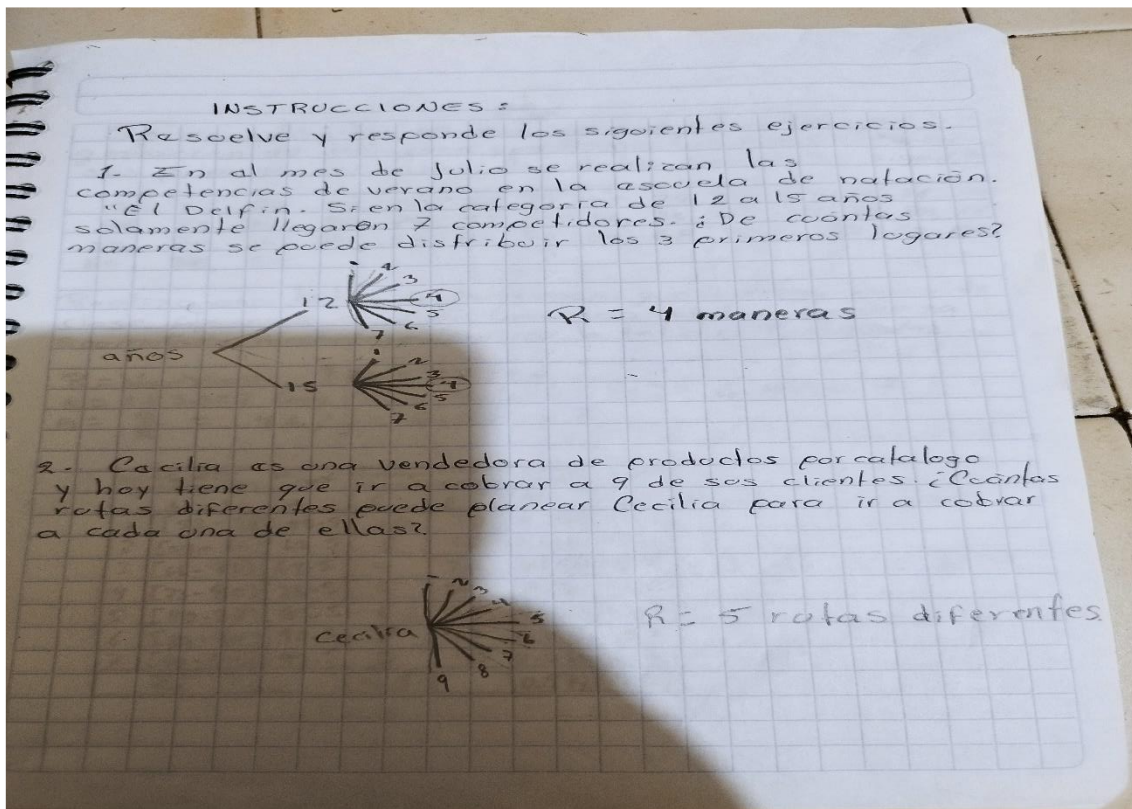 INSTRUCCIONES:
Resuelve y responde los siguientes ejercicios.
1- En al mes de Julio se realizan las
competencias de verano en la escuela de natación.
"El Delfin. Si en la categoria de 12 a 15 años
solamente llegaron 7 competidores. ¿De cuántas
maneras se puede distribuir los 3 primeros lugares?
años
12
1
2
3
4
5
6
7
R = 4 maneras
15
1
2
3
4
5
6
7
2- Cecilia es una vendedora de productos por catalogo
y hoy tiene que ir a cobrar a 9 de sus clientes. ¿Cuántas
rutas diferentes puede planear Cecilia para ir a cobrar
a cada una de ellas?
Cecilia
1
2
3
4
5
6
7
8
9
R = 5 rutas diferentes.